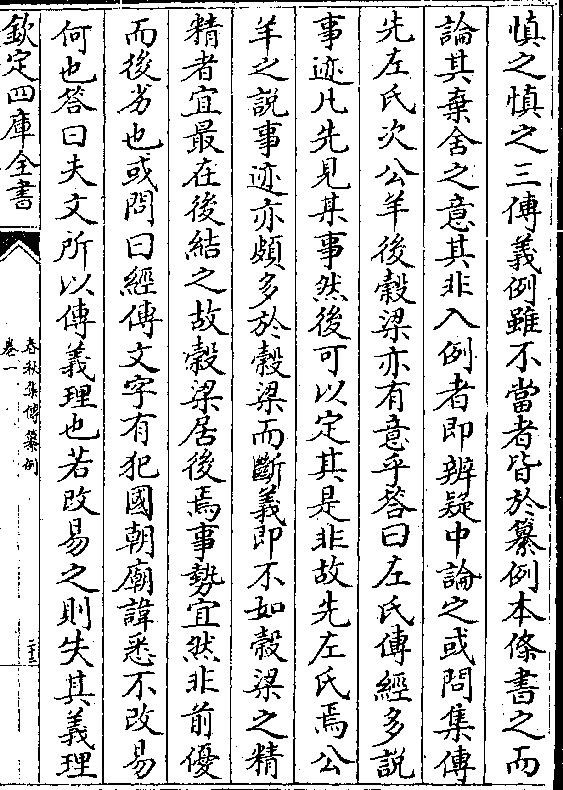 慎之慎之三傳義例雖不當者皆於纂例本條書之而
論其棄舍之意其非入例者即辨疑中論之或問集傳
先左氏次公羊後榖梁亦有意乎答曰左氏傳經多說
事迹凡先見某事然後可以定其是非故先左氏焉公
羊之說事迹亦頗多於榖梁而斷義即不如榖梁之精
精者宜最在後結之故榖梁居後焉事勢宜然非前優
而後劣也或問曰經傳文字有犯國朝廟諱悉不改易
何也答曰夫文所以傳義理也若改易之則失其義理
欽定四庫全書
春秋集傳纂例
卷一
二十三